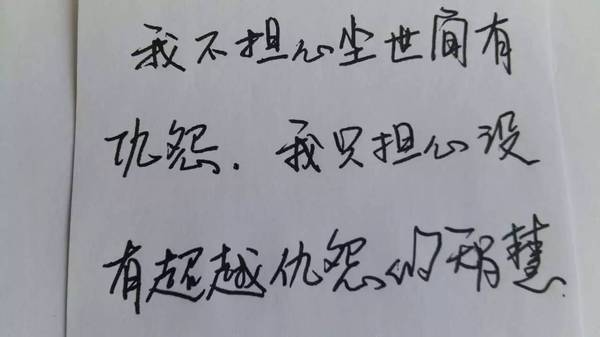 我不担心尘世间有
仇怨.我只担心没
有超越仇怨的智慧.